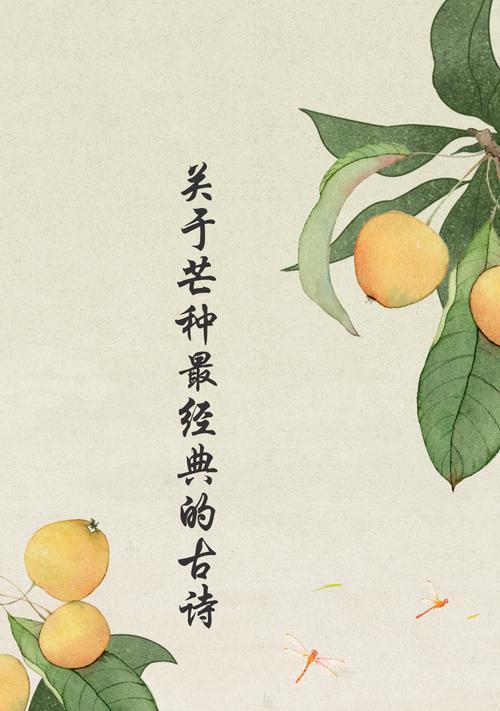 关于芒种最经典的古诗